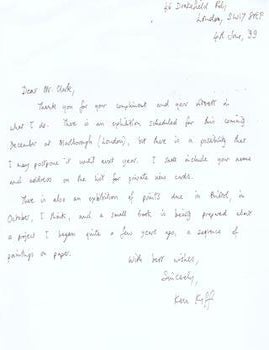 46 Drakefield Rd,
London, SW17 8RP
4th June, 99
Dear Mr. Clark,
Thank you for your compliment and your interest in
what I do. There is an exhibition scheduled for this coming
December at Marlborough (London), but there is a possibility that
I may postpone it until next year. I shall include your name
and address on the list for private view cards.
There is also an exhibition of prints due in Bristol, in
October, I think, and a small book is being prepared about
a project I began quite a few years ago, a sequence of
paintings on paper.
With best wishes,
Sincerely,
Ken Kiff